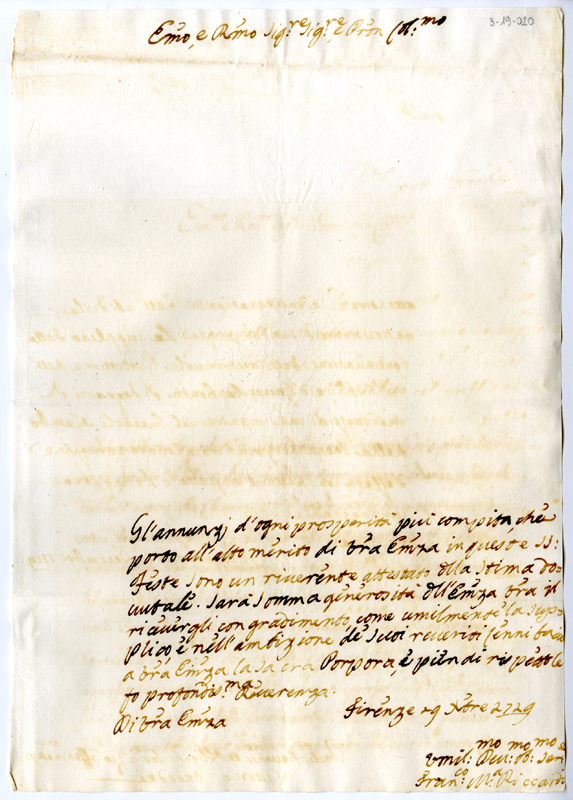 3-19-020
Emo, e Rmo Sig.re Sig.re, e Pron Col:mo
Gl'annunzj d'ogni prosperità piu compita, che
porto all'alto merito di Vra Emza in queste SS:
Feste sono un riverente attestato dlla stima do=
vutale. Sarà somma generosità dll'Emza Vra il
ricevergli con gradimento, come umilmente la sup=
plico, e nell'ambizione de suoi reveriti cenni bacio
a Vra Emza la sacra Porpora, e pien di rispetto le
fo profondis:ma Reverenza.
Di Vra Emza
Firenze 29 Xbre 1729
Vmil:mo Deu:mo Ob:mo Ser:
Fran:co M:a Riccardi